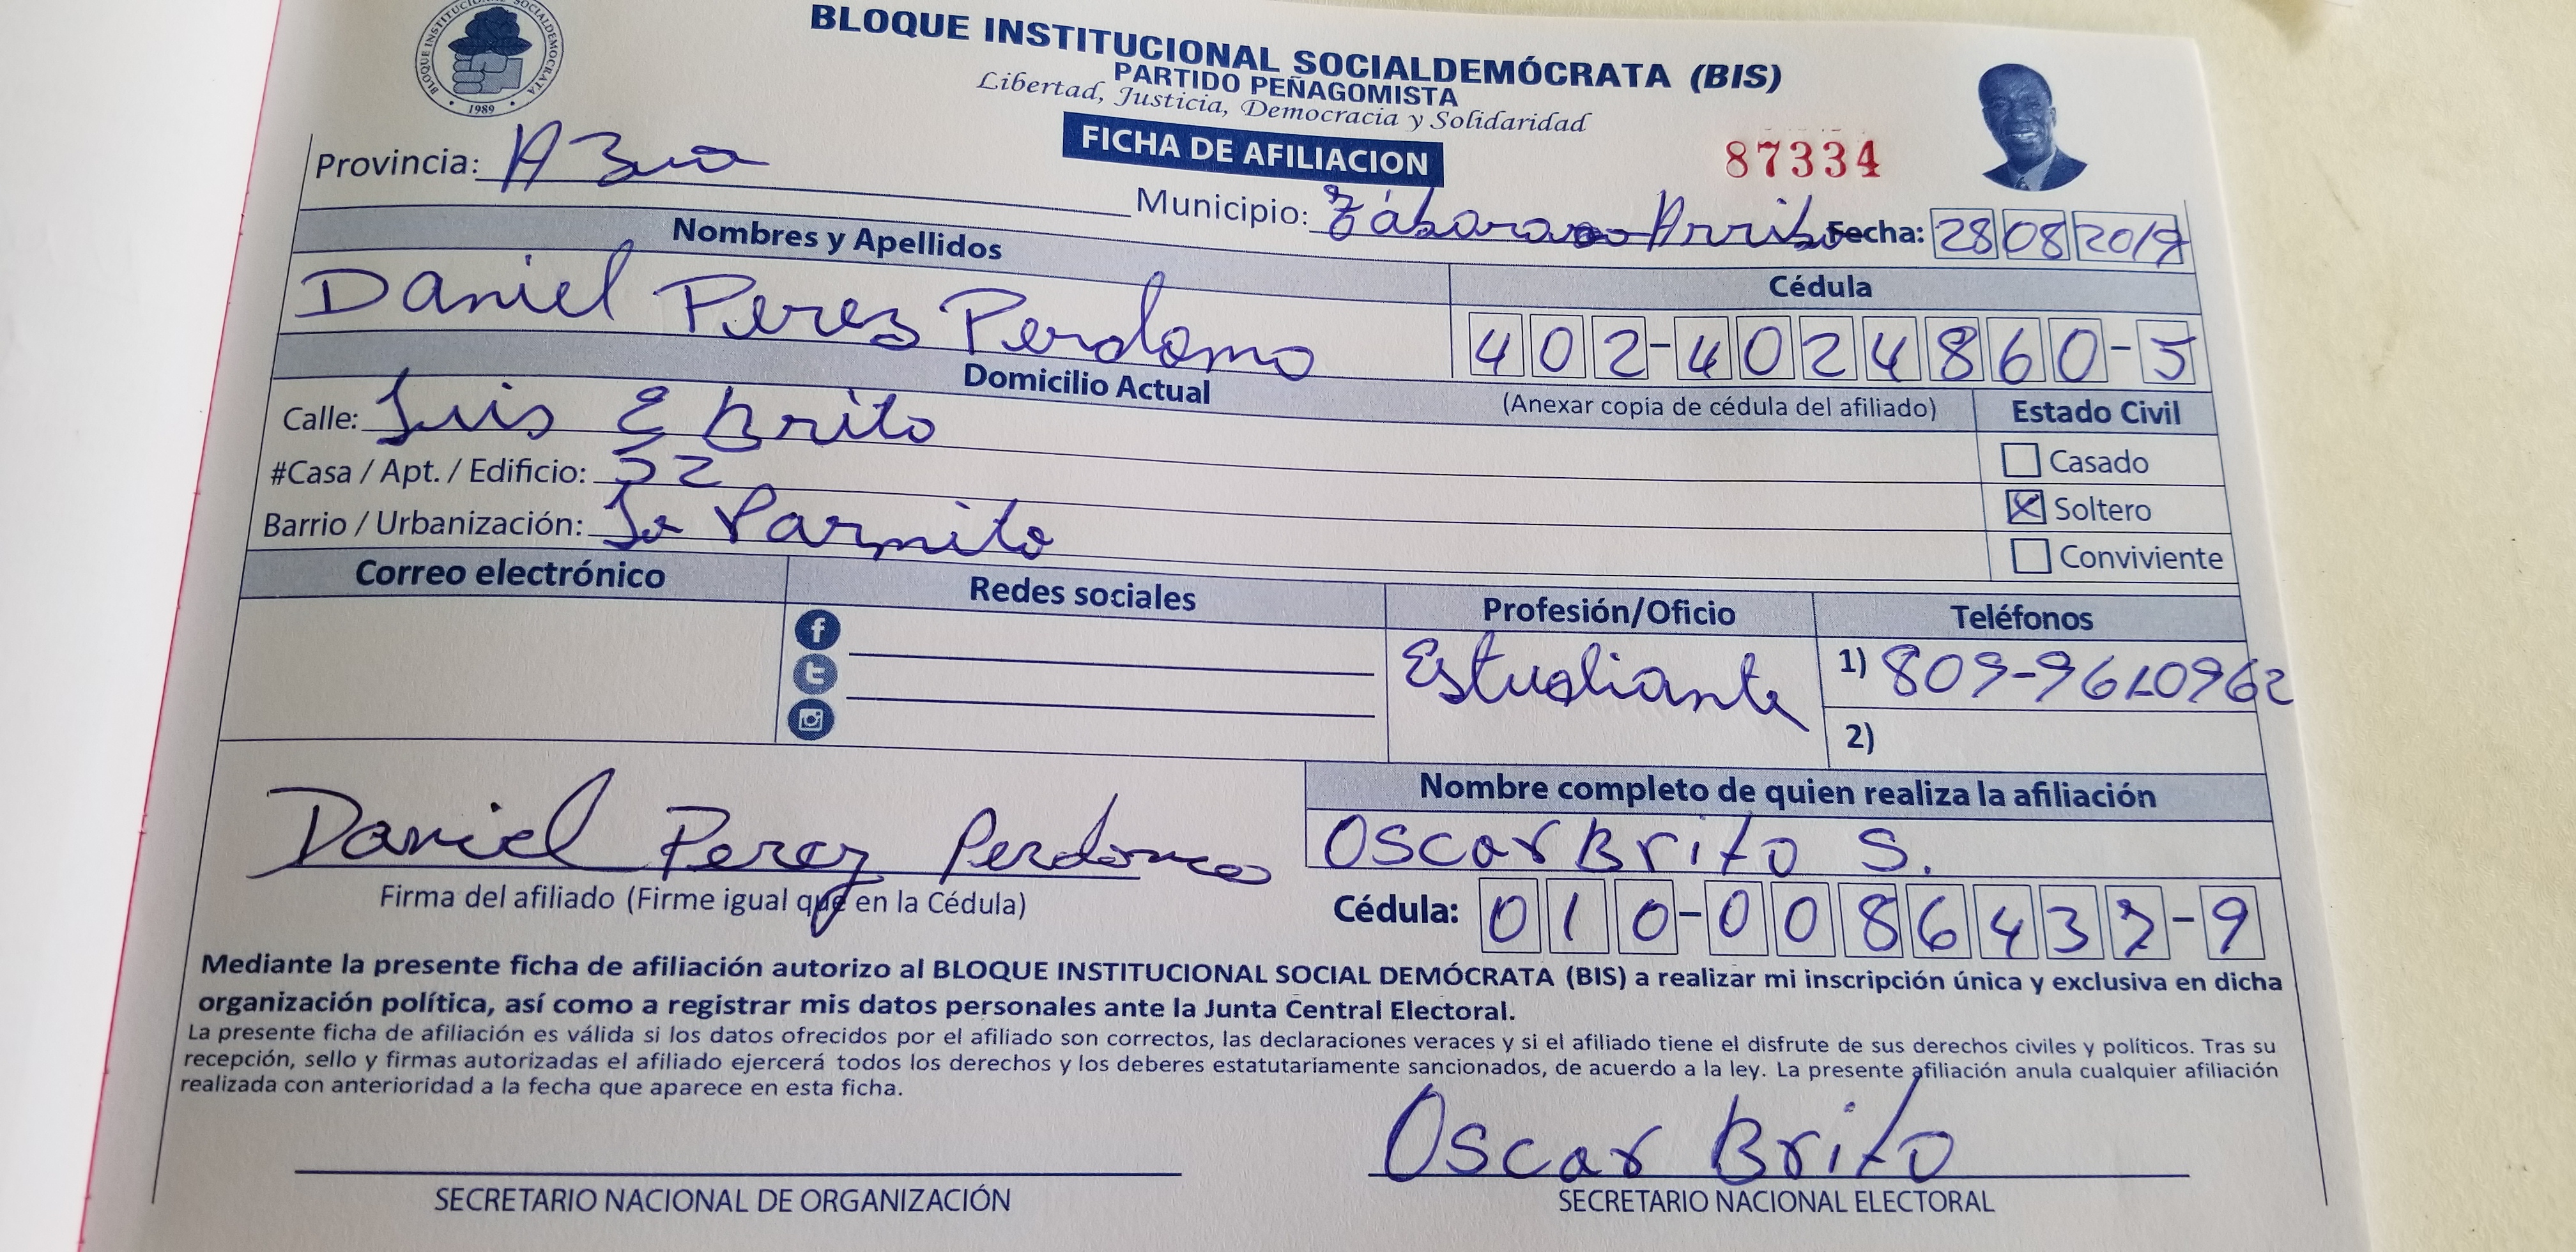 BLOQUE INSTITUCIONAL SOCIALDEMÓCRATA
1989
BLOQUE INSTITUCIONAL SOCIALDEMÓCRATA (BIS)
PARTIDO PEÑAGOMISTA
Libertad, Justicia, Democracia y Solidaridad
FICHA DE AFILIACION
87334
Provincia: Azua
Municipio: Tábara Arriba Fecha: 28 08 2019
Nombres y Apellidos
Cédula
Daniel Perez Perdomo
402-4024860-5
Domicilio Actual
(Anexar copia de cédula del afiliado)
Estado Civil
Calle: Luis E Brito
Casado
#Casa / Apt. / Edificio: 52
Soltero
Barrio / Urbanización: La
Conviviente
Correo electrónico
Redes sociales
Profesión/Oficio
Teléfonos
Estudiante
1) 809-9610962
2)
Nombre completo de quien realiza la afiliación
Daniel Perez Perdomo
Oscar Brito S.
Firma del afiliado (Firme igual que en la Cédula)
Cédula: 010-0086437-9
Mediante la presente ficha de afiliación autorizo al BLOQUE INSTITUCIONAL SOCIAL DEMÓCRATA (BIS) a realizar mi inscripción única y exclusiva en dicha
organización política, así como a registrar mis datos personales ante la Junta Central Electoral.
La presente ficha de afiliación es válida si los datos ofrecidos por el afiliado son correctos, las declaraciones veraces y si el afiliado tiene el disfrute de sus derechos civiles y políticos. Tras su
recepción, sello y firmas autorizadas el afiliado ejercerá todos los derechos y los deberes estatutariamente sancionados, de acuerdo a la ley. La presente afiliación anula cualquier afiliación
realizada con anterioridad a la fecha que aparece en esta ficha.
Oscar Brito
SECRETARIO NACIONAL DE ORGANIZACIÓN
SECRETARIO NACIONAL ELECTORAL